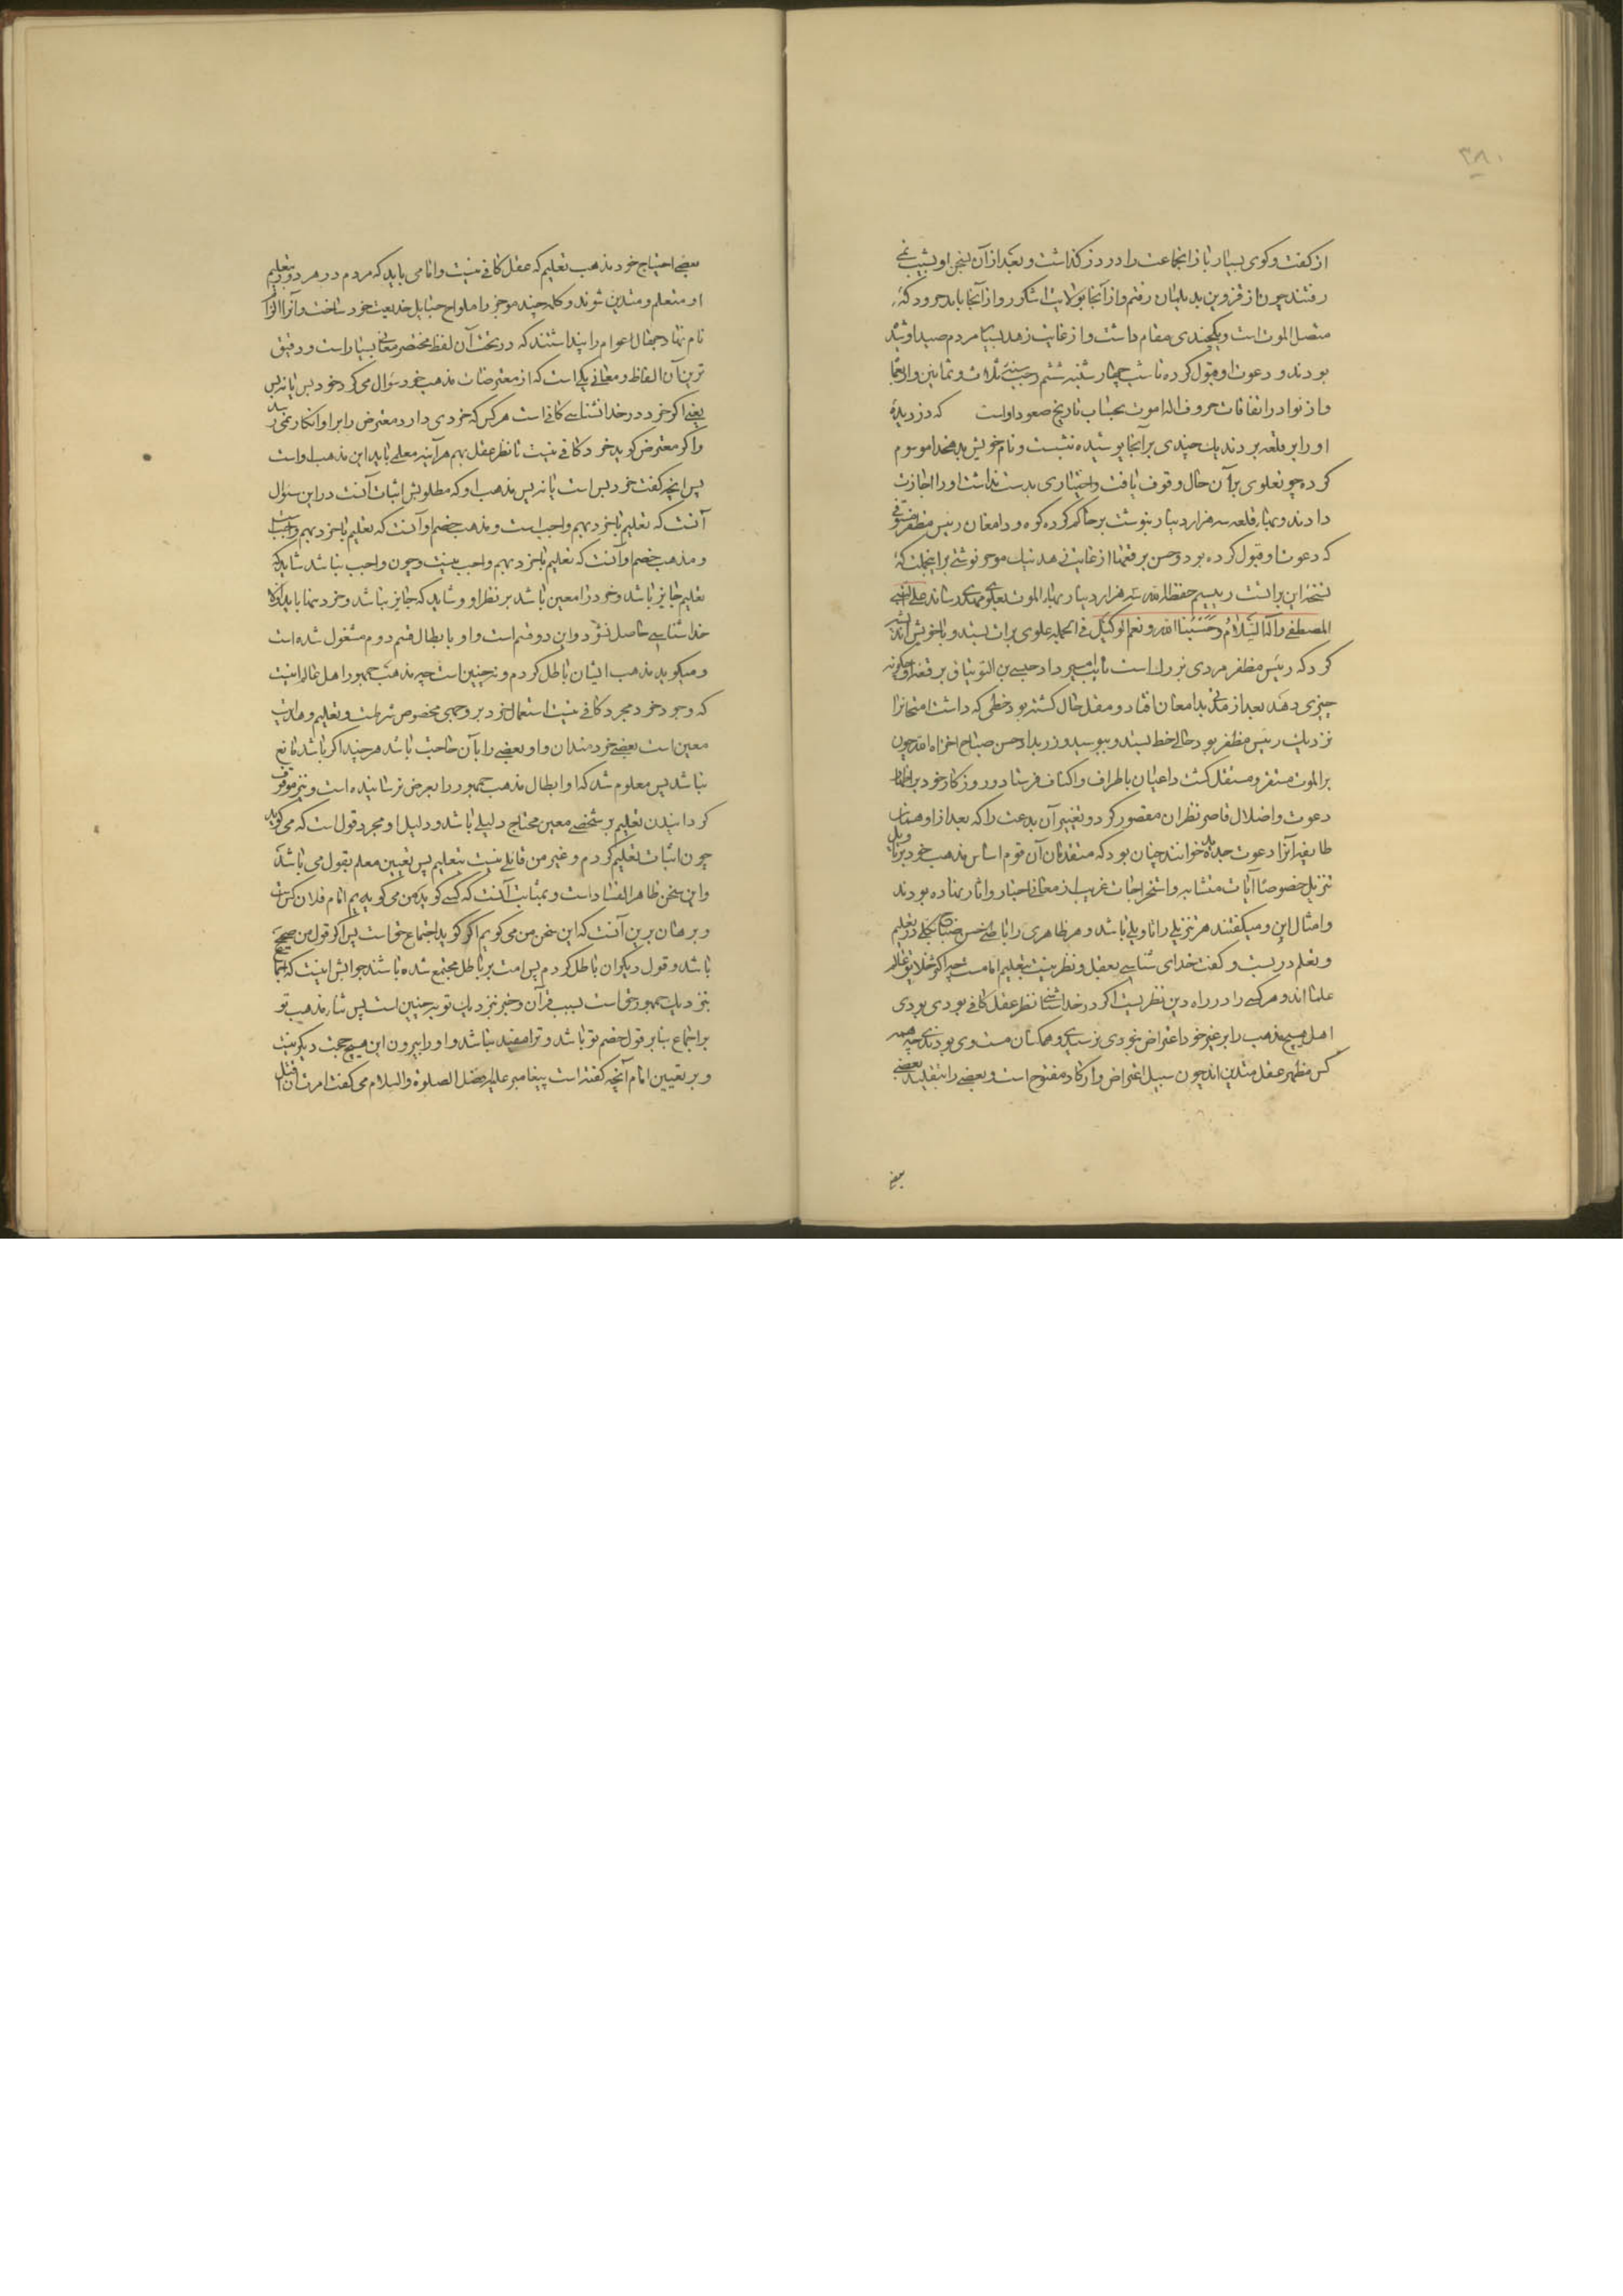 ۳۸۰
از کفت و کوی بسیار باز انجماعت را در دز کذاشت و بعد از آن بنجن او بشیب نمی
رفتند چون از قزوین بدیلمان رفتم و از آنجا بولایت اشکور و از آنجا باندجرود که
متصل الموت است و یکچندی مقام داشت و از غایت زهد بسیار مردم صید او شده
بودند و دعوت او قبول کرده تا شب چهارشنبه ششم رجب سنه ثلاث و ثمانین و اربعمایه
و از نوادر اتفاقات حروف اله اموت بحساب تاریخ صعود اوست که دزدیده
او را بر قلعه بردند یک چندی بر آنجا پوشیده نشست و نام خویش بدهخدا موسوم
کرده چو نعلوی برآن حال وقوف یافت و اختیاری بدست نداشت او را اجازت
دادند و بهای قلعه سه هزار دینار بنوشت بر حاکم کرده کوه و دامغان رئیس مظفر مستوفی
که دعوت او قبول کرده بود و حسن بر قعتها از غایت زهد نیک موجز نوشتی بر این جملت که
نسخه این برانست رئیس م حفظه الله سه هزار دینار بهای الموت بعلوی مهدی رساند علی النبی
المصطفی و آله السلام و حسبنا الله و نعم الوکیل فی الجمله علوی برات بستد و با خویش اندیشه
کرد که رئیس مظفر مردی بزرک است نایب امیر داد حبشی بن التونتاق بر قعه او چکونه
چیزی دهد بعد از مدتی بدامغان افتاد و مقل حال کشته بود خطی که داشت امتحانرا
نزدیک رئیس مظفر برد حالی خط بستد و ببوسید و زر بداد حسن صباح اخزاه الله چون
بر الموت مستقر و مستقل کشت داعیان باطراف و اکناف فرستاد و روزکار خود بر اظهار
دعوت و اضلال قاصر نظران مقصور کرد و تغییر آن بدعت را که بعد از او همان
طایفه آنرا دعوت جدیده خوانند چنان بود که متقدمان آن قوم اساس مذهب خود بر تاویل
تنزیل خصوصا آیات متشابه و استخراجات غریب از معانی اخبار و اثار نهاده بودند
و امثال این و میکفتند هر تنزیلی را تاویلی باشد و هر ظاهری را باطنی حسن صباح بکلی در تعلیم
و تعلم دربست و کفت خدای شناسی بعقل و نظر نیست بتعلیم امامست چه اکثر خلایق عالم
عقلا اند و هر کسی را در راه دین نظریست اکر در خداشناسی نظر عقل کافی بودی بودی
اهل هیچ مذهب را بر غیر خود اعتراض نبودی نرسیدی و همکنان متساوی بودندی چه همه
کس بنظر عقل متدین اند چون سبیل اعتراض و انکار مفتوح است و بعضی را بتقلید بعضی
بعضی
بعضی احتیاج خود مذهب تعلیم که عقل کافی نیست و امامی باید که مردم در هر دور بتعلیم
او متعلم و متدین شوند و کلمه چند موجز را ملواح حبایل خدیعت خود ساخت و آنرا الزام
نام نهاد جهال عوام را پنداشتند که در تحت آن لفظ مختصر معانی بسیار است و دقیق
ترین آن الفاظ و معانی یکی است که از معترضان مذهب خود سؤال می کرد خرد بس یا نه بس
یعنی اکر خرد در خدا شناسی کافی است هر کس که خردی دارد معترض را بر او انکار نمی رسد
و اکر معترض کوید خرد کافی نیست با نظر عقل بهم هر آینه معلمی باید این مذهب اوست
پس اینچه کفت خرد بس است یا نه بس مذهب او که مطلوبش اثبات آنست در این سؤال
آنست که تعلیم با خرد بهم واجب است و مذهب خصم او آنست که تعلیم با خرد بهم واجب نیست
و مذهب خصم او آنست که تعلیم با خرد بهم واجب نیست و چون واجب نباشد شاید که
تعلیم جایز باشد و خرد را معین باشد بر نظر او و شاید که جایز نباشد و خرد تنها باید والا
خدا شناسی حاصل نشود و این دو قسم است و او بابطال قسم دوم مشغول شده است
و میکوید مذهب ایشان باطل کردم و نه چنین است چه مذهب جمهور اهل عالم اینست
که وجود خرد مجرد کافی نیست استعمال خرد بر وجهی مخصوص شرطست و تعلیم و هدایت
معین است بعضی خردمندان و او بعضی را بآن حاجت باشد هر چند اکر باشد مانع
نباشد پس معلوم شد که او ابطال مذهب جمهور را بعرض نرسانیده است و نیز موقوف
کردانیدن تعلیم بر شخصی معین محتاج دلیلی باشد و دلیل او مجرد قول است که می کوید
چون اثبات تعلیم کردم و غیر من قائلی نیست بتعلیم پس تعیین معلم بقول من باشد
و این سخن ظاهر الفساد است و بمثابت آنست که کسی کوید من می کویم امام فلان کس است
و برهان برین آنست که این سخن من می کویم اکر کوید اجماع حق است پس اکر قول من صحیح
باشد و قول دیکران باطل کردم پس امت بر باطل مجتمع شده باشند جوابش اینست که اجماع
بنزدیک جمهور حق است بسبب قرآن و خبر نزدیک تو نه چنین است پس بناء مذهب تو
بر اجماع بنا بر قول خصم تو باشد و ترا مفید نباشد و او را بیرون این هیچ حجت دیکر نیست
و بر تعیین امام آنچه کفته است پیغامبر علیه افضل الصلوة والسلام می کفت امرت ان اقاتل